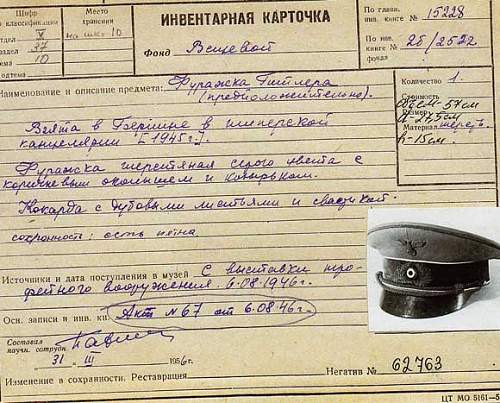 Шифр
классификации
отдел V
раздел 37
тема 10
подтема
Место
хранения
ИНВЕНТАРНАЯ КАРТОЧКА
Фонд Вещевой
По главн.
инв. книге № 15228
По инв.
книге № 25/2522
фонда
Наименование и описание предмета: Фуражка Гитлера
(предположительно).
Количество 1.
Стоимость
Объем-57см
Размер
Материал шерсть.
h-15см.
Взята в Берлине в имперской
канцелярии [1945г.]
Фуражка шерстяная серого цвета с
коричневым околышем и козырьком.
Кокарда с дубовыми листьями и свастикой.
сохранность: есть пятна
Источники и дата поступления в музей С выставки тро-
фейного вооружения. 6.08.1946г.
Осн. записи в инв. кн. Акт №67 от 6.08.46г.
Составил
научн. сотрудн.
31 III 1956г.
Негатив № 62763
Изменение в сохранности. Реставрация
ЦТ МО 5161—5